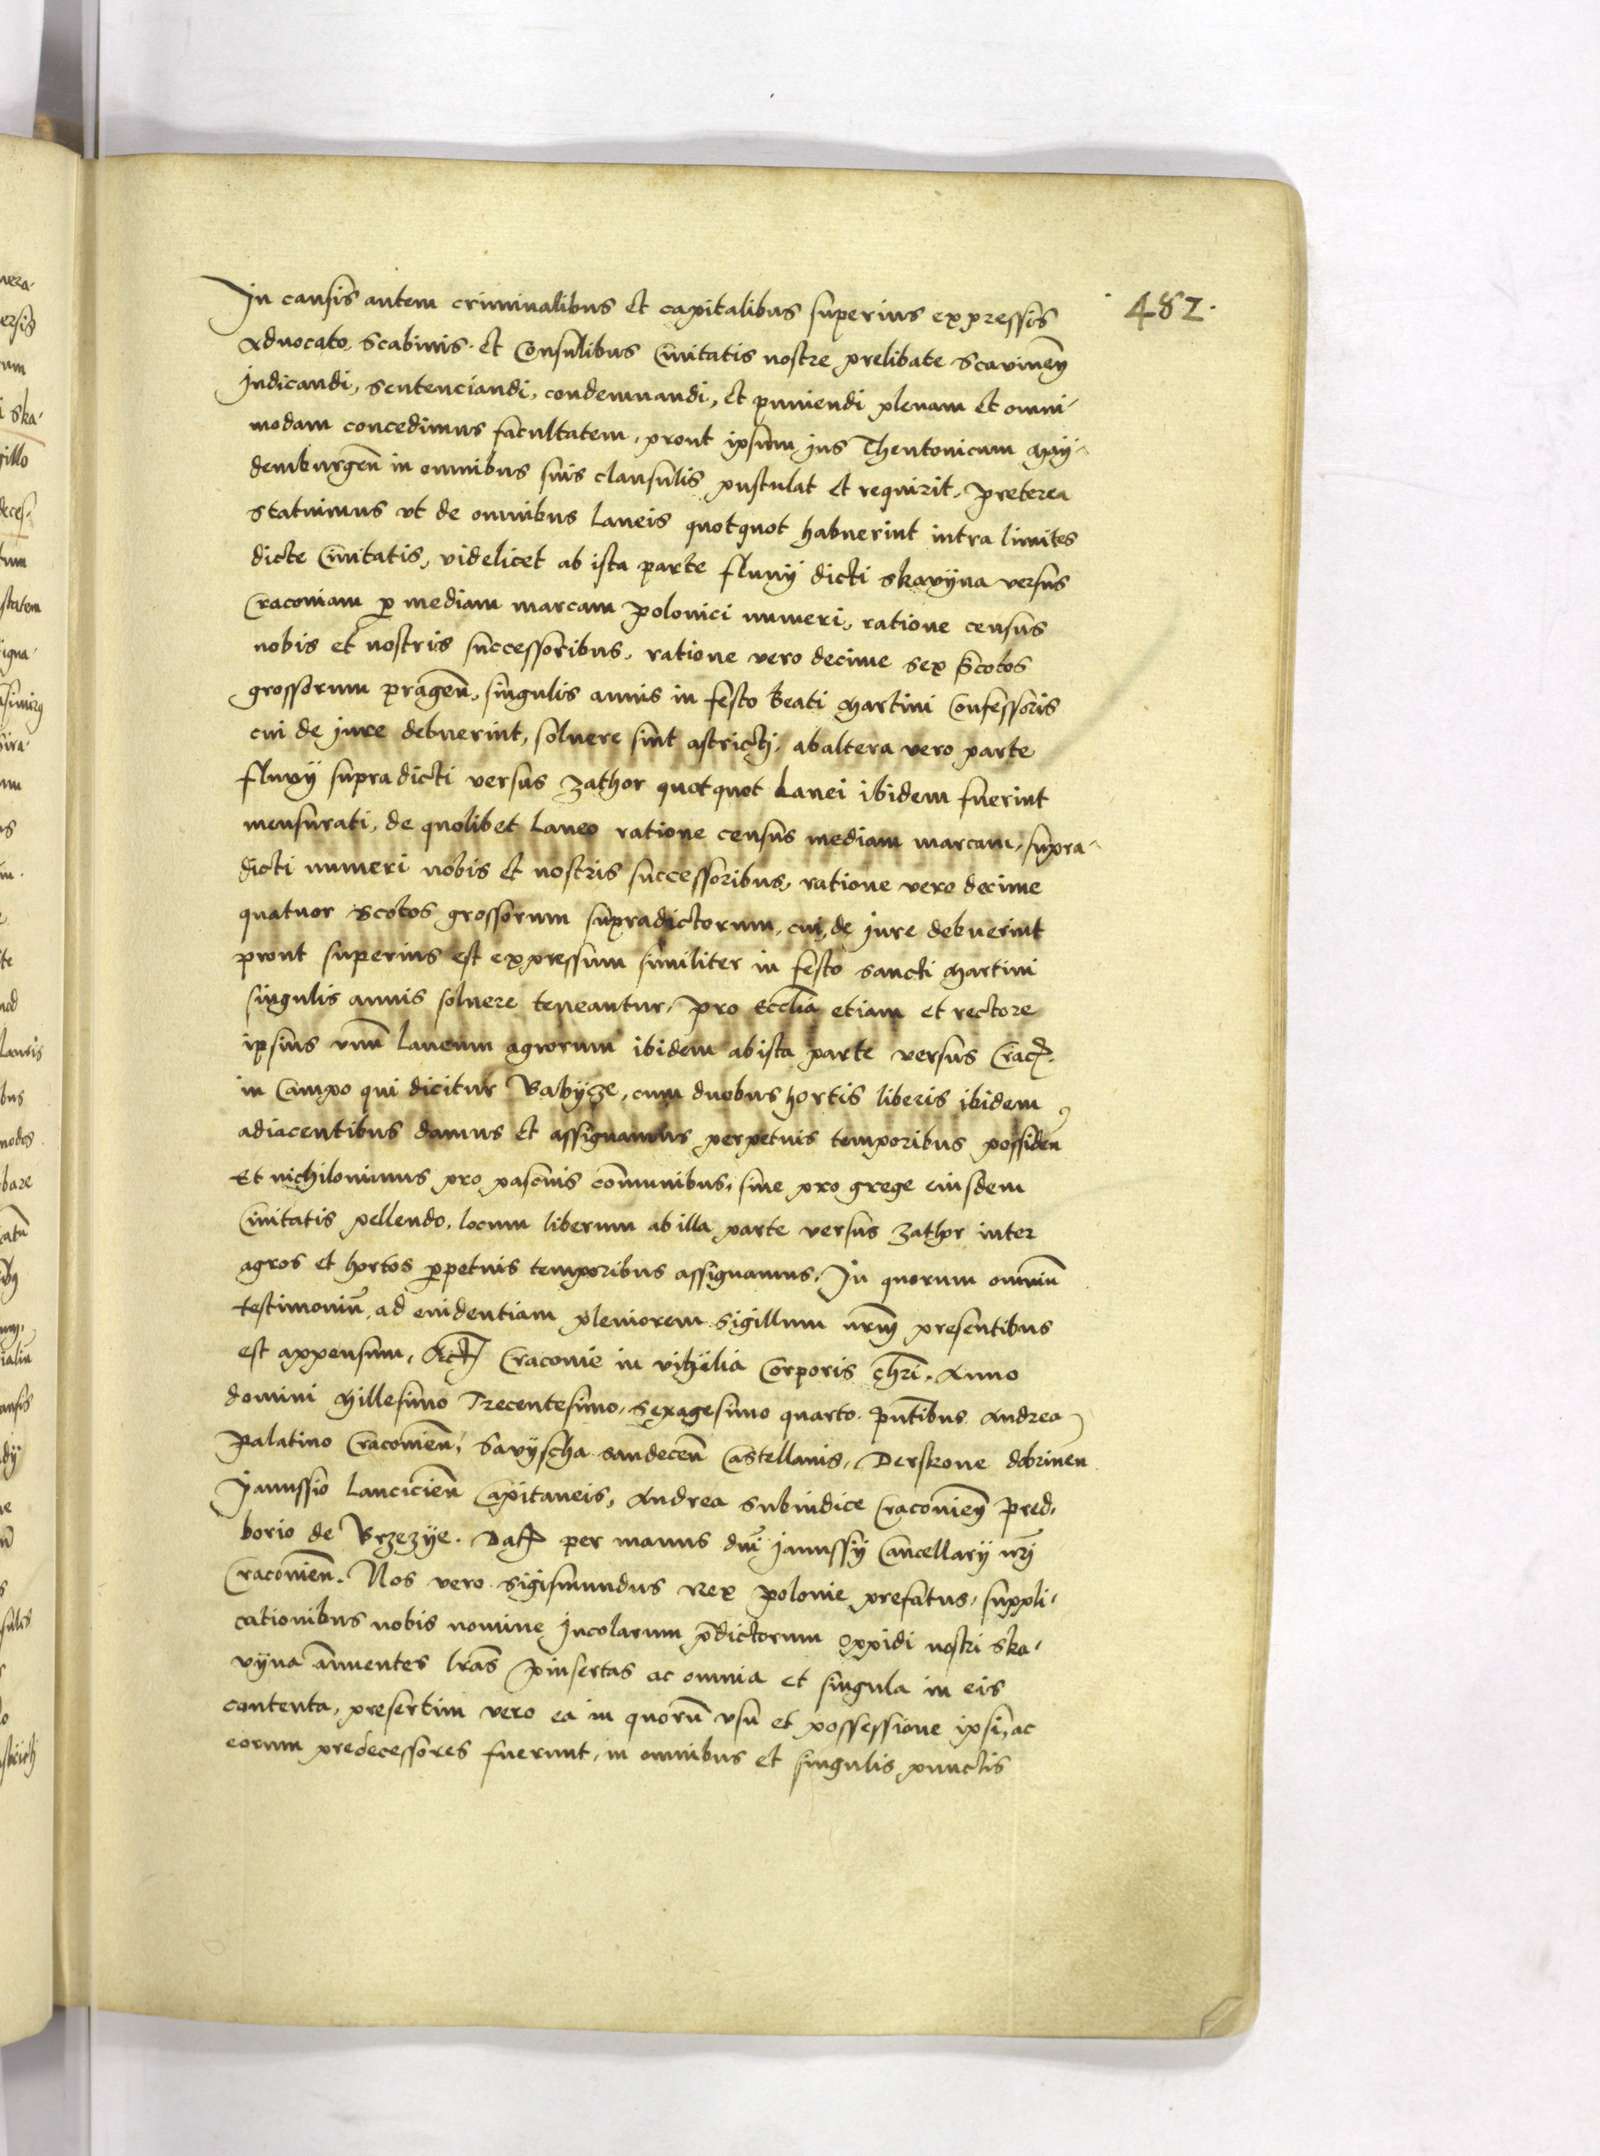 482.
In causis autem criminalibus et capitalibus superius expressis
Advocato, Scabinis et Consulibus Civitatis nostre prelibate Scavineñ
Judicandi, sentenciandi, condemnandi, et puniendi plenam et omni-
modam concedimus facultatem, prout ipsum jus Theutonicum May-
demburgeñ in omnibus suis clausulis postulat et requirit, preterea
statuimus ut de omnibus laneis quotquot habuerint intra limites
dicte Civitatis, videlicet ab ista parte fluvij dicti Skavyna versus
Cracoviam ꝑ mediam marcam polonici numeri, ratione census
nobis et nostris successoribus, ratione vero decime sex Scotos
grossorum prageñ, singulis annis in festo beati Martini Confessoris
cui de jure debuerint, solvere sint astricti, ab altera vero parte
fluvij supradicti versus Zathor quotquot Lanei ibidem fuerint
mensurati, de quolibet laneo ratione census mediam marcam, supra-
dicti numeri nobis et nostris successoribus, ratione vero decime
quatuor Scotos grossorum supradictorum, cui de jure debuerint
prout superius est expressum similiter in festo sancti Martini
singulis annis solvere teneantur, pro Ecclia etiam et rectore
ipsius unū laneum agrorum ibidem ab ista parte versus Crac̄.
in Campo qui dicitur Babycze, cum duobus hortis liberis ibidem
adiacentibus damus et assignamus perpetuis temporibus possideñ
Et nichilominus pro pascuis cōmunibus, sive pro grege eiusdem
Civitatis pellendo, locum liberum ab illa parte versus Zathor inter
agros et hortos ꝑpetuis temporibus assignamus, In quorum omniū
testimoniū, ad evidentiam pleniorem Sigillum nrm̄ presentibus
est appensum, Act̄ Cracovie in vihilia Corporis Chr̄i, Anno
domini Millesimo Trecentesimo, Sexagesimo quarto. pn̄tibus Andrea
Palatino Cracovieñ, Savyscha Sandeceñ Castellanis, Derskone dobrineñ
Janussio Lancicieñ Capitaneis, Andrea Subiudice Cracovieñ Pred-
borio de Brzezye. Dat̄ per manus dn̄i Janussy Cancellarij nr̄i
Cracovieñ. Nos vero Sigismundus Rex Polonie prefatus, suppli-
cationibus nobis nomine Incolarum p̄dictorum oppidi nostri Ska-
vyna annuentes lr̄as p̄insertas ac omnia et singula in eis
contenta, presertim vero ea in quorū usu et possessione ipsi, ac
eorum predecessores fuerunt, in omnibus et singulis punctis